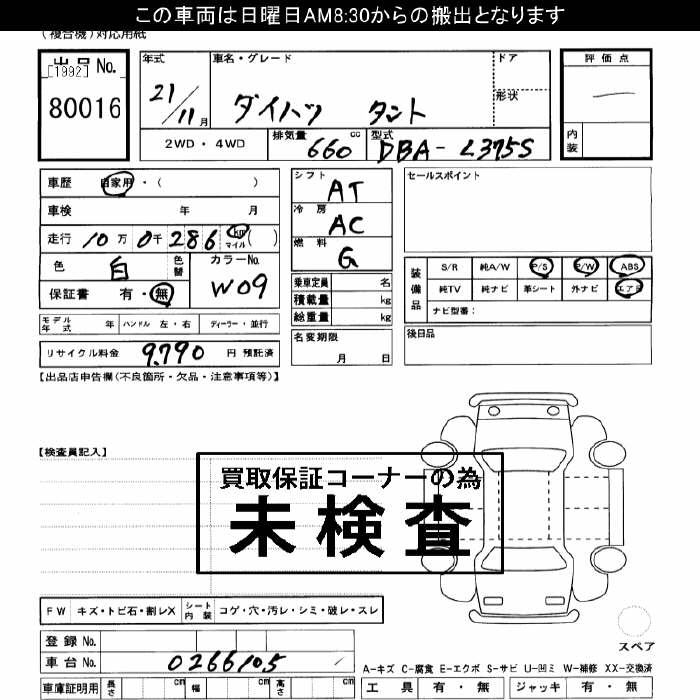 この車両は日曜日AM8:30からの搬出となります
(複合機)対応用紙
出品No.
[1992]
80016
年式
21/11月
車名・グレード
ダイハツ タント
ドア
形状
評価点
内装
2WD・4WD
排気量 660 cc
型式 DBA-L375S
車歴 自家用・( )
車検 年 月
走行 10万0千286 km マイル ( )
色 白
色替
カラーNo. W09
保証書 有・無
シフト AT
冷房 AC
燃料 G
乗車定員 名
積載量 kg
総重量 kg
セールスポイント
装備品
S/R 純A/W P/S P/W ABS
純TV 純ナビ 革シート 外ナビ エアB
ナビ型番:
モデル年式 年
ハンドル 左・右
ディーラー・並行
名変期限 月 日
後日品
リサイクル料金 9,790 円 預託済
【出品店申告欄(不良箇所・欠品・注意事項等)】
【検査員記入】
買取保証コーナーの為
未検査
FW キズ・トビ石・割レX
シート内装 コゲ・穴・汚レ・シミ・破レ・スレ
登録No.
車台No. 0266105
スペア
A-キズ C-腐食 E-エクボ S-サビ U-凹ミ W-補修 XX-交換済
車庫証明用 長さ cm 幅 cm 高さ cm
工具 有・無 ジャッキ 有・無